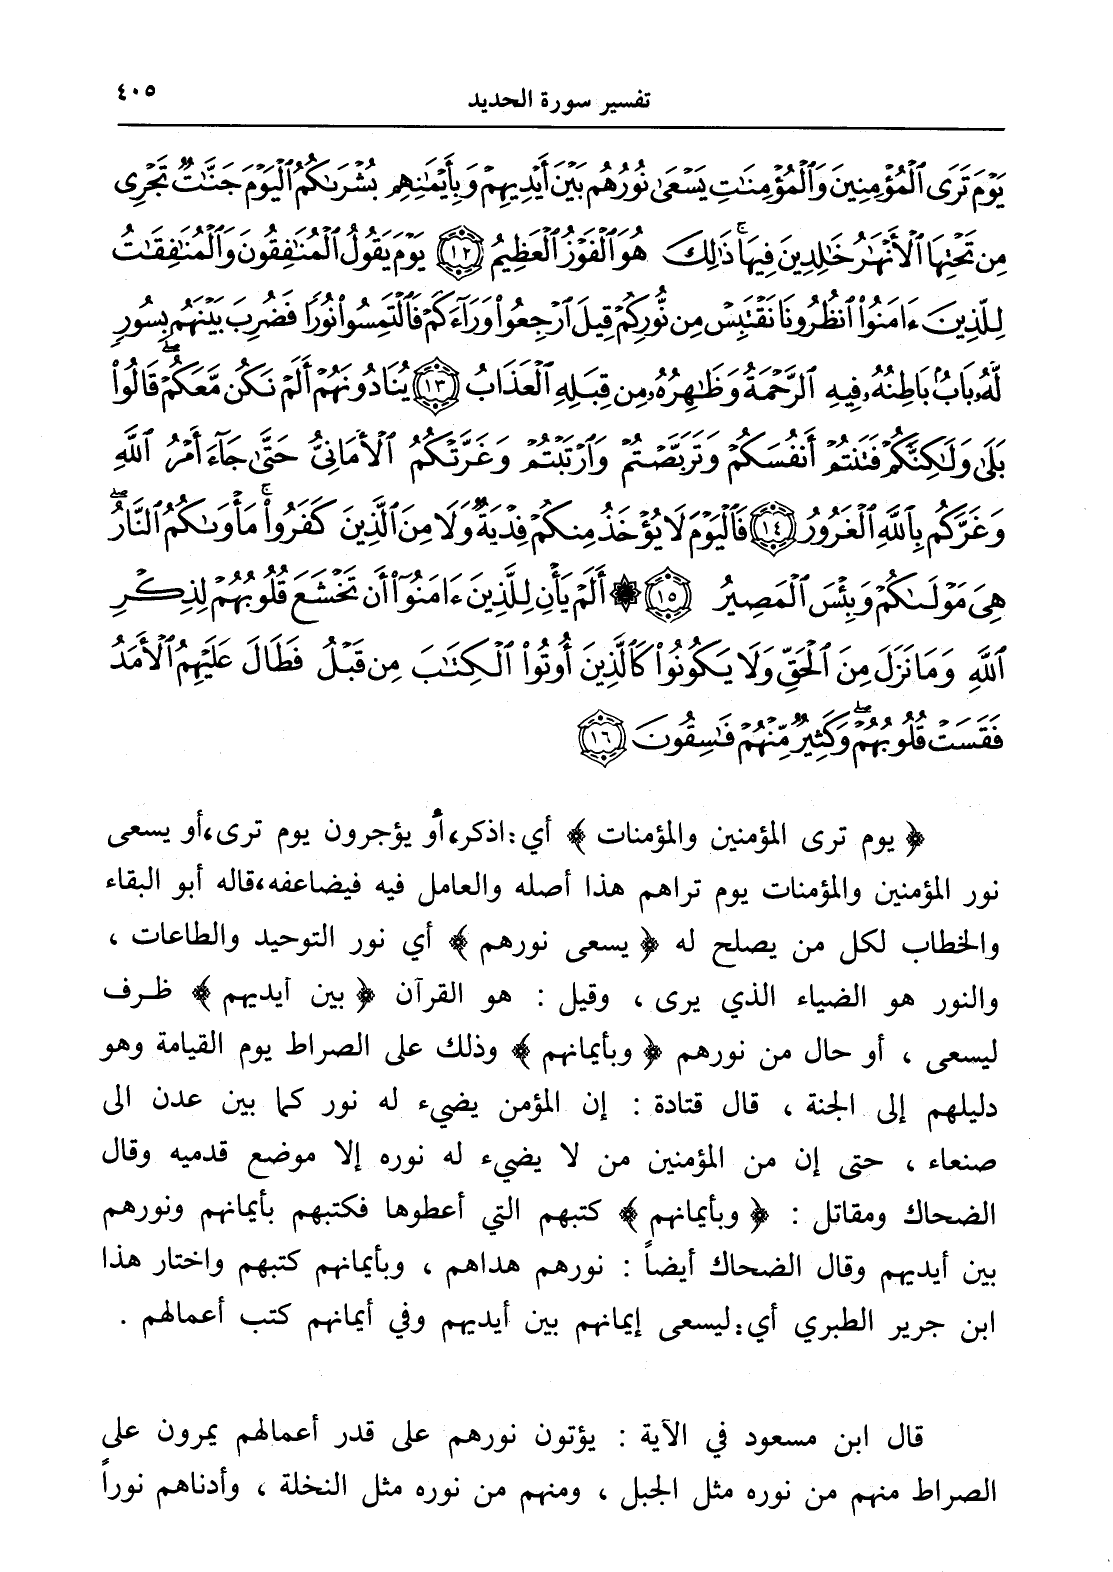 تفسير سورة الحديد ٤٠٥
يَوْمَ تَرَى ٱلْمُؤْمِنِينَ وَٱلْمُؤْمِنَٰتِ يَسْعَىٰ نُورُهُم بَيْنَ أَيْدِيهِمْ وَبِأَيْمَٰنِهِم بُشْرَىٰكُمُ ٱلْيَوْمَ جَنَّٰتٌ تَجْرِى
مِن تَحْتِهَا ٱلْأَنْهَٰرُ خَٰلِدِينَ فِيهَا ۚ ذَٰلِكَ هُوَ ٱلْفَوْزُ ٱلْعَظِيمُ ﴿١٢﴾ يَوْمَ يَقُولُ ٱلْمُنَٰفِقُونَ وَٱلْمُنَٰفِقَٰتُ
لِلَّذِينَ ءَامَنُوا۟ ٱنظُرُونَا نَقْتَبِسْ مِن نُّورِكُمْ قِيلَ ٱرْجِعُوا۟ وَرَآءَكُمْ فَٱلْتَمِسُوا۟ نُورًا فَضُرِبَ بَيْنَهُم بِسُورٍ
لَّهُۥ بَابٌۢ بَاطِنُهُۥ فِيهِ ٱلرَّحْمَةُ وَظَٰهِرُهُۥ مِن قِبَلِهِ ٱلْعَذَابُ ﴿١٣﴾ يُنَادُونَهُمْ أَلَمْ نَكُن مَّعَكُمْ ۖ قَالُوا۟
بَلَىٰ وَلَٰكِنَّكُمْ فَتَنتُمْ أَنفُسَكُمْ وَتَرَبَّصْتُمْ وَٱرْتَبْتُمْ وَغَرَّتْكُمُ ٱلْأَمَانِىُّ حَتَّىٰ جَآءَ أَمْرُ ٱللَّهِ
وَغَرَّكُم بِٱللَّهِ ٱلْغَرُورُ ﴿١٤﴾ فَٱلْيَوْمَ لَا يُؤْخَذُ مِنكُمْ فِدْيَةٌ وَلَا مِنَ ٱلَّذِينَ كَفَرُوا۟ ۚ مَأْوَىٰكُمُ ٱلنَّارُ ۖ
هِىَ مَوْلَىٰكُمْ وَبِئْسَ ٱلْمَصِيرُ ﴿١٥﴾ ۞ أَلَمْ يَأْنِ لِلَّذِينَ ءَامَنُوٓا۟ أَن تَخْشَعَ قُلُوبُهُمْ لِذِكْرِ
ٱللَّهِ وَمَا نَزَلَ مِنَ ٱلْحَقِّ وَلَا يَكُونُوا۟ كَٱلَّذِينَ أُوتُوا۟ ٱلْكِتَٰبَ مِن قَبْلُ فَطَالَ عَلَيْهِمُ ٱلْأَمَدُ
فَقَسَتْ قُلُوبُهُمْ ۖ وَكَثِيرٌ مِّنْهُمْ فَٰسِقُونَ ﴿١٦﴾
﴿ يوم ترى المؤمنين والمؤمنات ﴾ أي: اذكر، أو يؤجرون يوم ترى، أو يسعى
نور المؤمنين والمؤمنات يوم تراهم هذا أصله والعامل فيه فيضاعفه، قاله أبو البقاء
والخطاب لكل من يصلح له ﴿ يسعى نورهم ﴾ أي نور التوحيد والطاعات ،
والنور هو الضياء الذي يرى ، وقيل : هو القرآن ﴿ بين أيديهم ﴾ ظرف
ليسعى ، أو حال من نورهم ﴿ وبأيمانهم ﴾ وذلك على الصراط يوم القيامة وهو
دليلهم إلى الجنة ، قال قتادة : إن المؤمن يضيء له نور كما بين عدن الى
صنعاء ، حتى إن من المؤمنين من لا يضيء له نوره إلا موضع قدميه وقال
الضحاك ومقاتل : ﴿ وبأيمانهم ﴾ كتبهم التي أعطوها فكتبهم بأيمانهم ونورهم
بين أيديهم وقال الضحاك أيضاً : نورهم هداهم ، وبأيمانهم كتبهم واختار هذا
ابن جرير الطبري أي: ليسعى إيمانهم بين أيديهم وفي أيمانهم كتب أعمالهم .
قال ابن مسعود في الآية : يؤتون نورهم على قدر أعمالهم يمرون على
الصراط منهم من نوره مثل الجبل ، ومنهم من نوره مثل النخلة ، وأدناهم نوراً